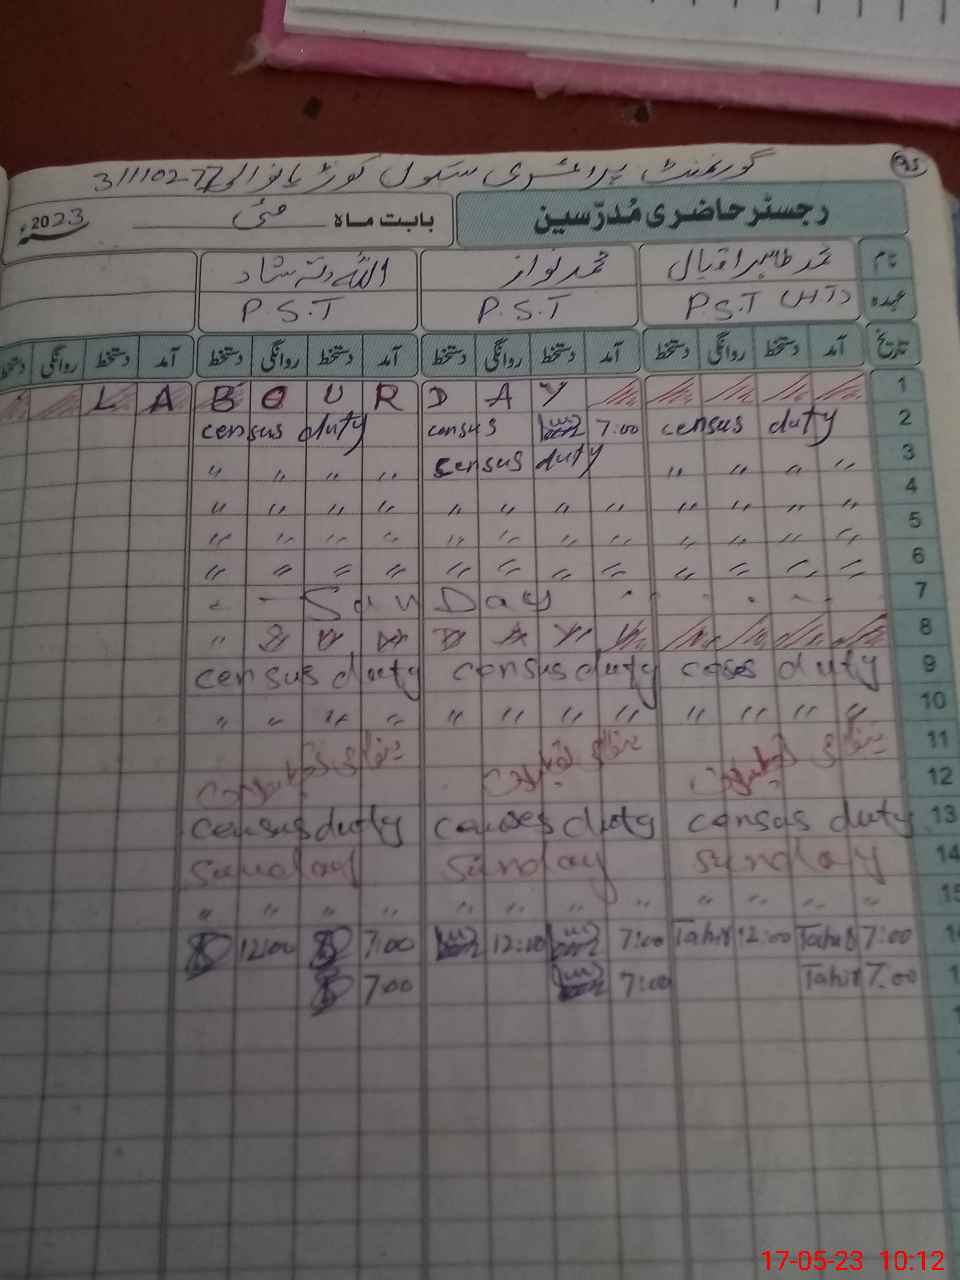 95
گورنمنٹ پرائمری سکول
رجسٹر حاضری مُدرّسین بابت ماہ مئی 2023ء
نام محمد طاہر اقبال محمد نواز اللہ دتہ شاد
عہدہ P.S.T (HT) P.S.T P.S.T
تاریخ آمد دستخط روانگی دستخط آمد دستخط روانگی دستخط آمد دستخط روانگی دستخط آمد دستخط روانگی دستخط
L A B O U R D A Y 1
census duty census 7:00 census duty 2
" " " " census duty " " " " 3
" " " " " " " " " " " " 4
" " " " " " " " " " " " 5
" " " " " " " " " " " " 6
Sun Day 7
8
census duty census duty coses duty 9
" " " " " " " " " " " " 10
11
12
census duty causes duty censas duty 13
sunday sunday sunday 14
" " " " " " " " " " " " 15
12:00 7:00 12:00 7:00 Tahir 12:00 Tahir 7:00
7:00 7:00 Tahir 7:00
17-05-23 10:12